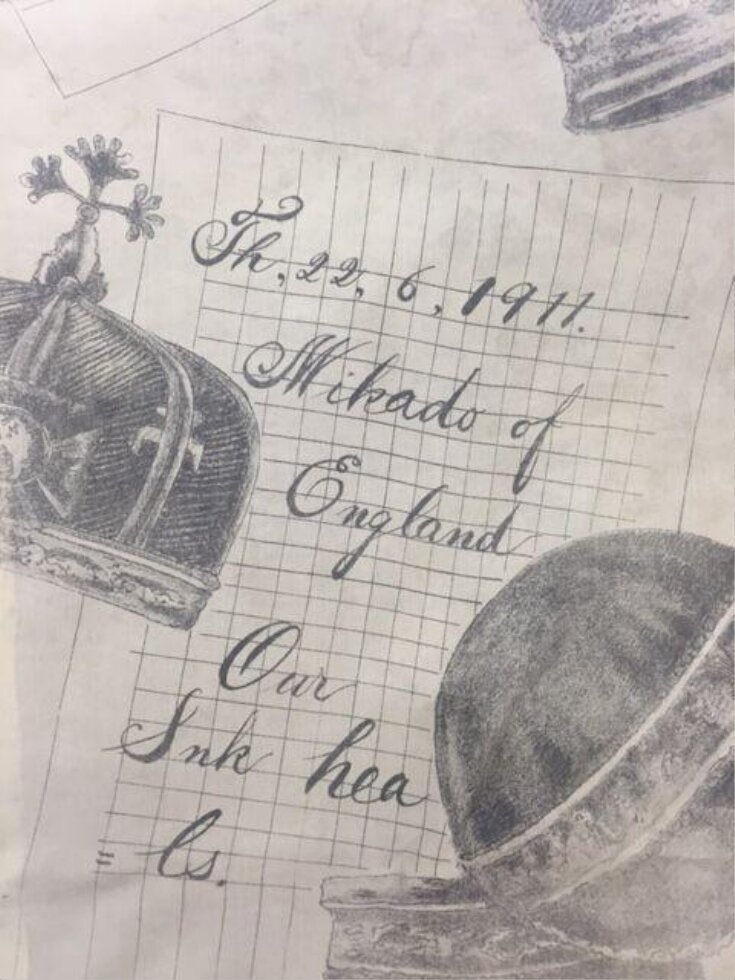 Th, 22, 6, 1911.
Mikado of
England
Our
Ink hea
= ls.